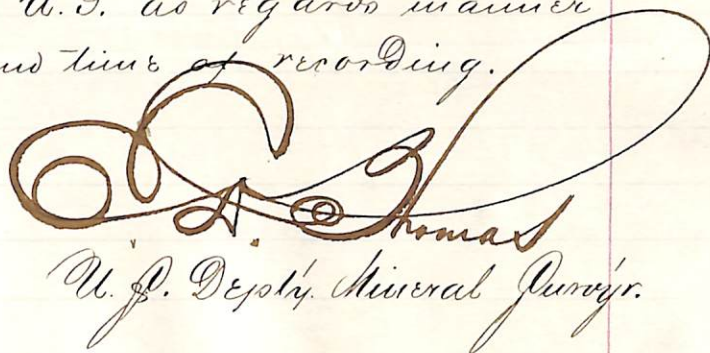 U.S. as regards manner
and time of recording.
C. A. Thomas
U.S. Depty. Mineral Survyr.